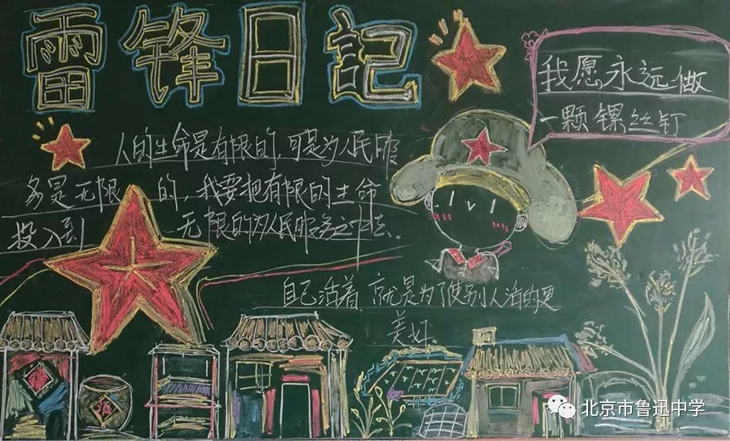 雷锋日记
我愿永远做
一颗镙丝钉
人的生命是有限的,可是为人民服
务是无限的,我要把有限的生命
投入到无限的为人民服务之中去。
自己活着,就是为了使别人活的更
美好。
福
北京市鲁迅中学